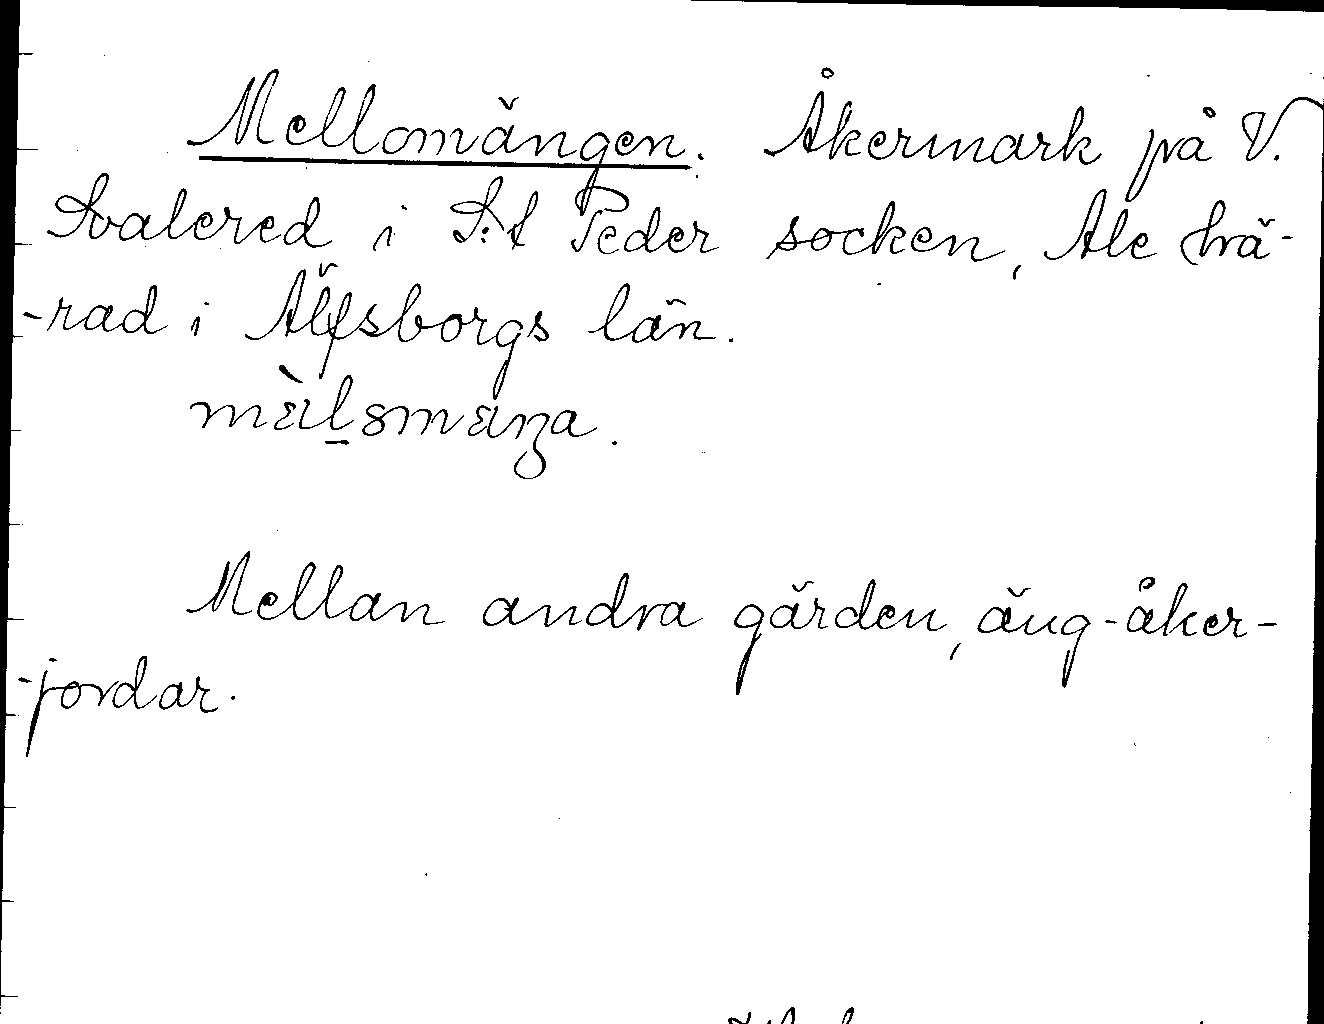 Mellomängen. Åkermark på V.
Svalered i S:t Peder socken, Ale hä-
-rad i Älfsborgs län.
mälsmäŋa.
Mellan andra gärden, äng-åker-
-jordar.